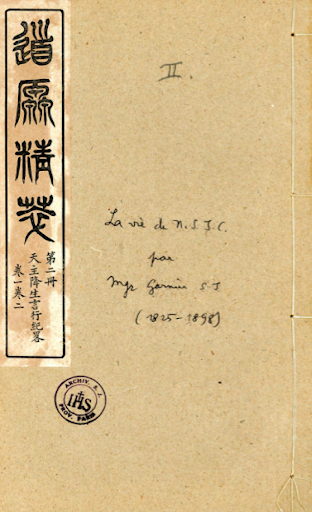 道原精萃
第二冊
天主降生言行紀畧
卷一卷二
II.
La vie de N.S.J.C.
par
Mgr Garnier S.J
(1825-1898)
ARCHIV. S.J.
IHS
PROV. PARIS